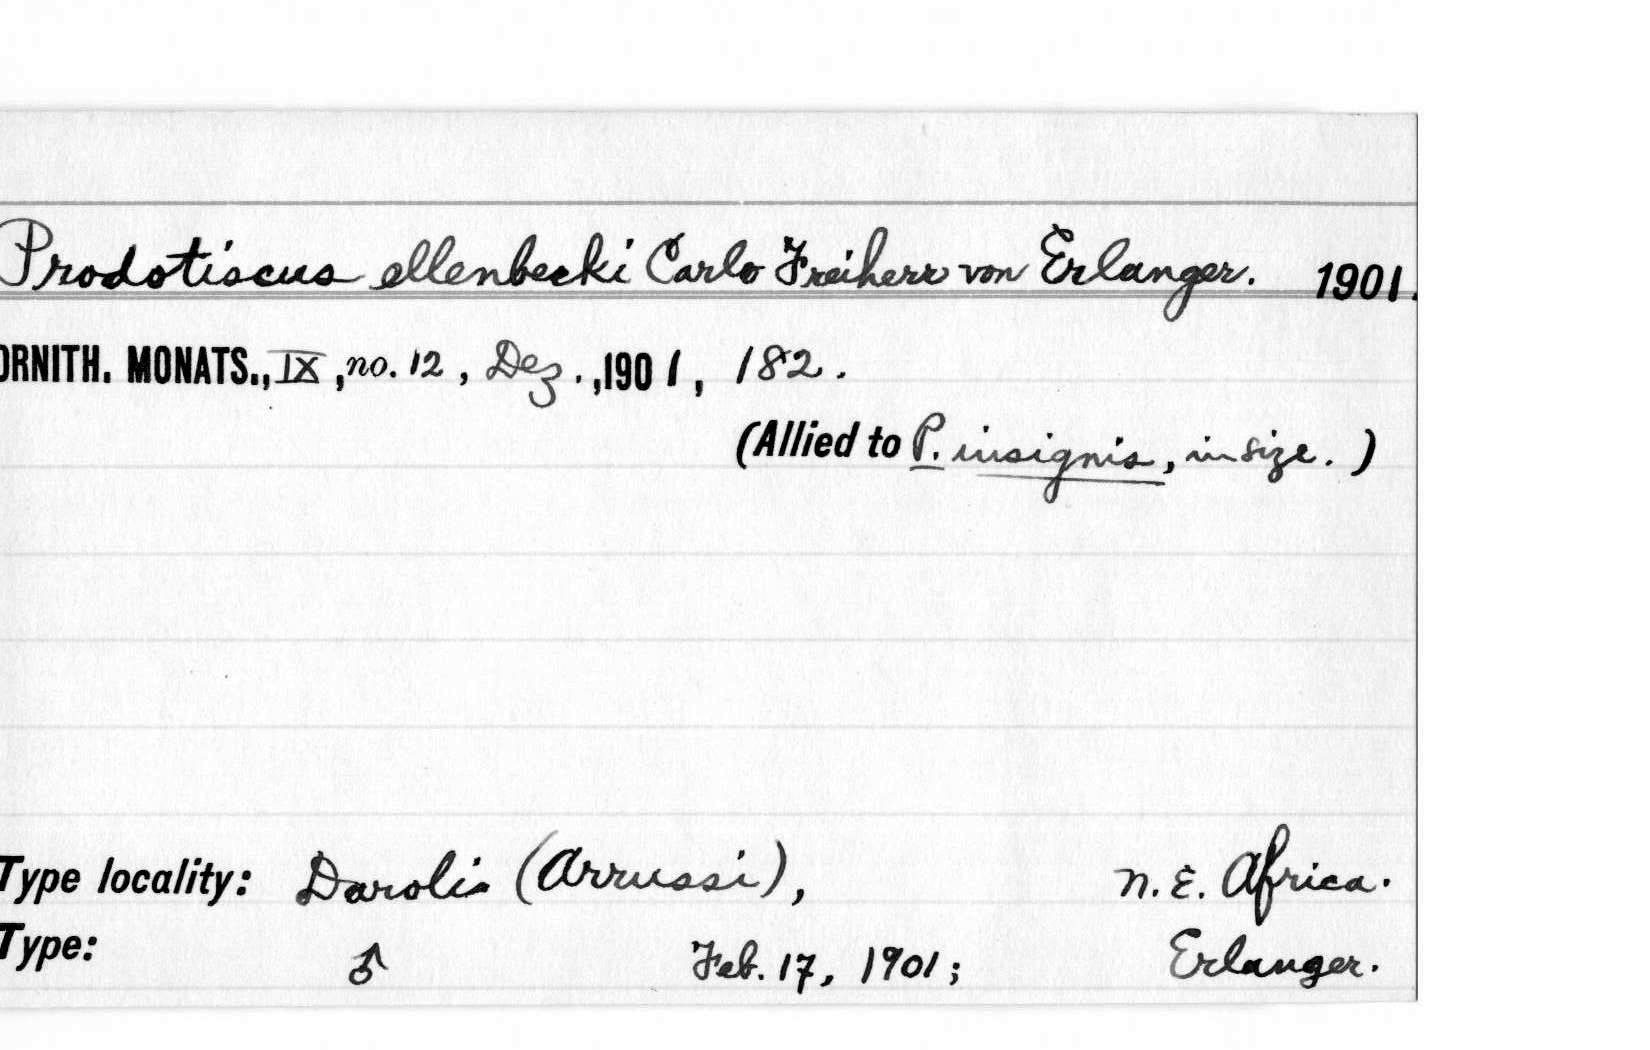 Prodotiscus ellenbecki Carlo Freiherr von Erlanger. 1901.
ORNITH. MONATS., IX, no. 12, Dez., 1901, 182.
(Allied to P. insignis, in size.)
Type locality: Daroli (Arrussi), N. E. Africa.
Type: ♂ Feb. 17, 1901; Erlanger.